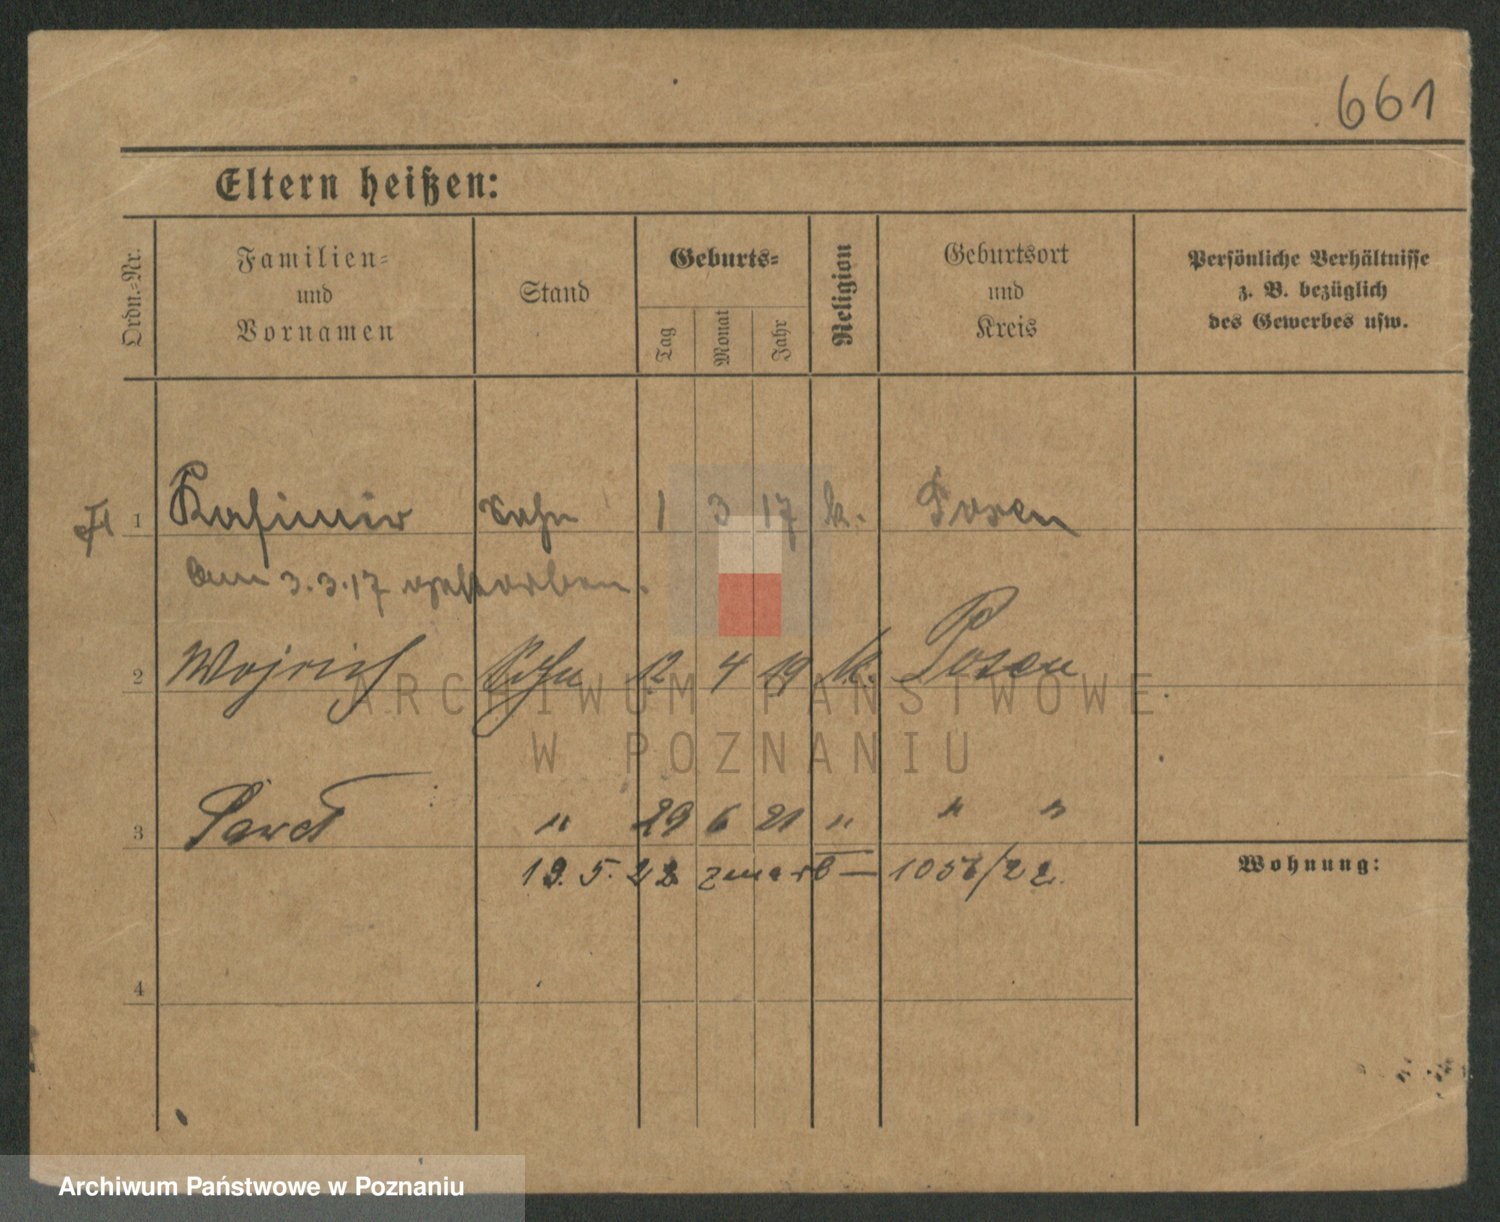 661
Eltern heißen:
Ordn.-Nr.
Familien- und Vornamen
Stand
Geburts-
Tag
Monat
Jahr
Religion
Geburtsort und Kreis
Persönliche Verhältnisse z. B. bezüglich des Gewerbes usw.
1 Kasimir Sohn 1 3 17 k. Posen
am 3.3.17 gestorben.
2 Sohn 12 4 19 k. Posen
3 " 29 6 21 " " "
19. 5. 22 zmarł
Wohnung:
4
ARCHIWUM PAŃSTWOWE
W POZNANIU
Archiwum Państwowe w Poznaniu